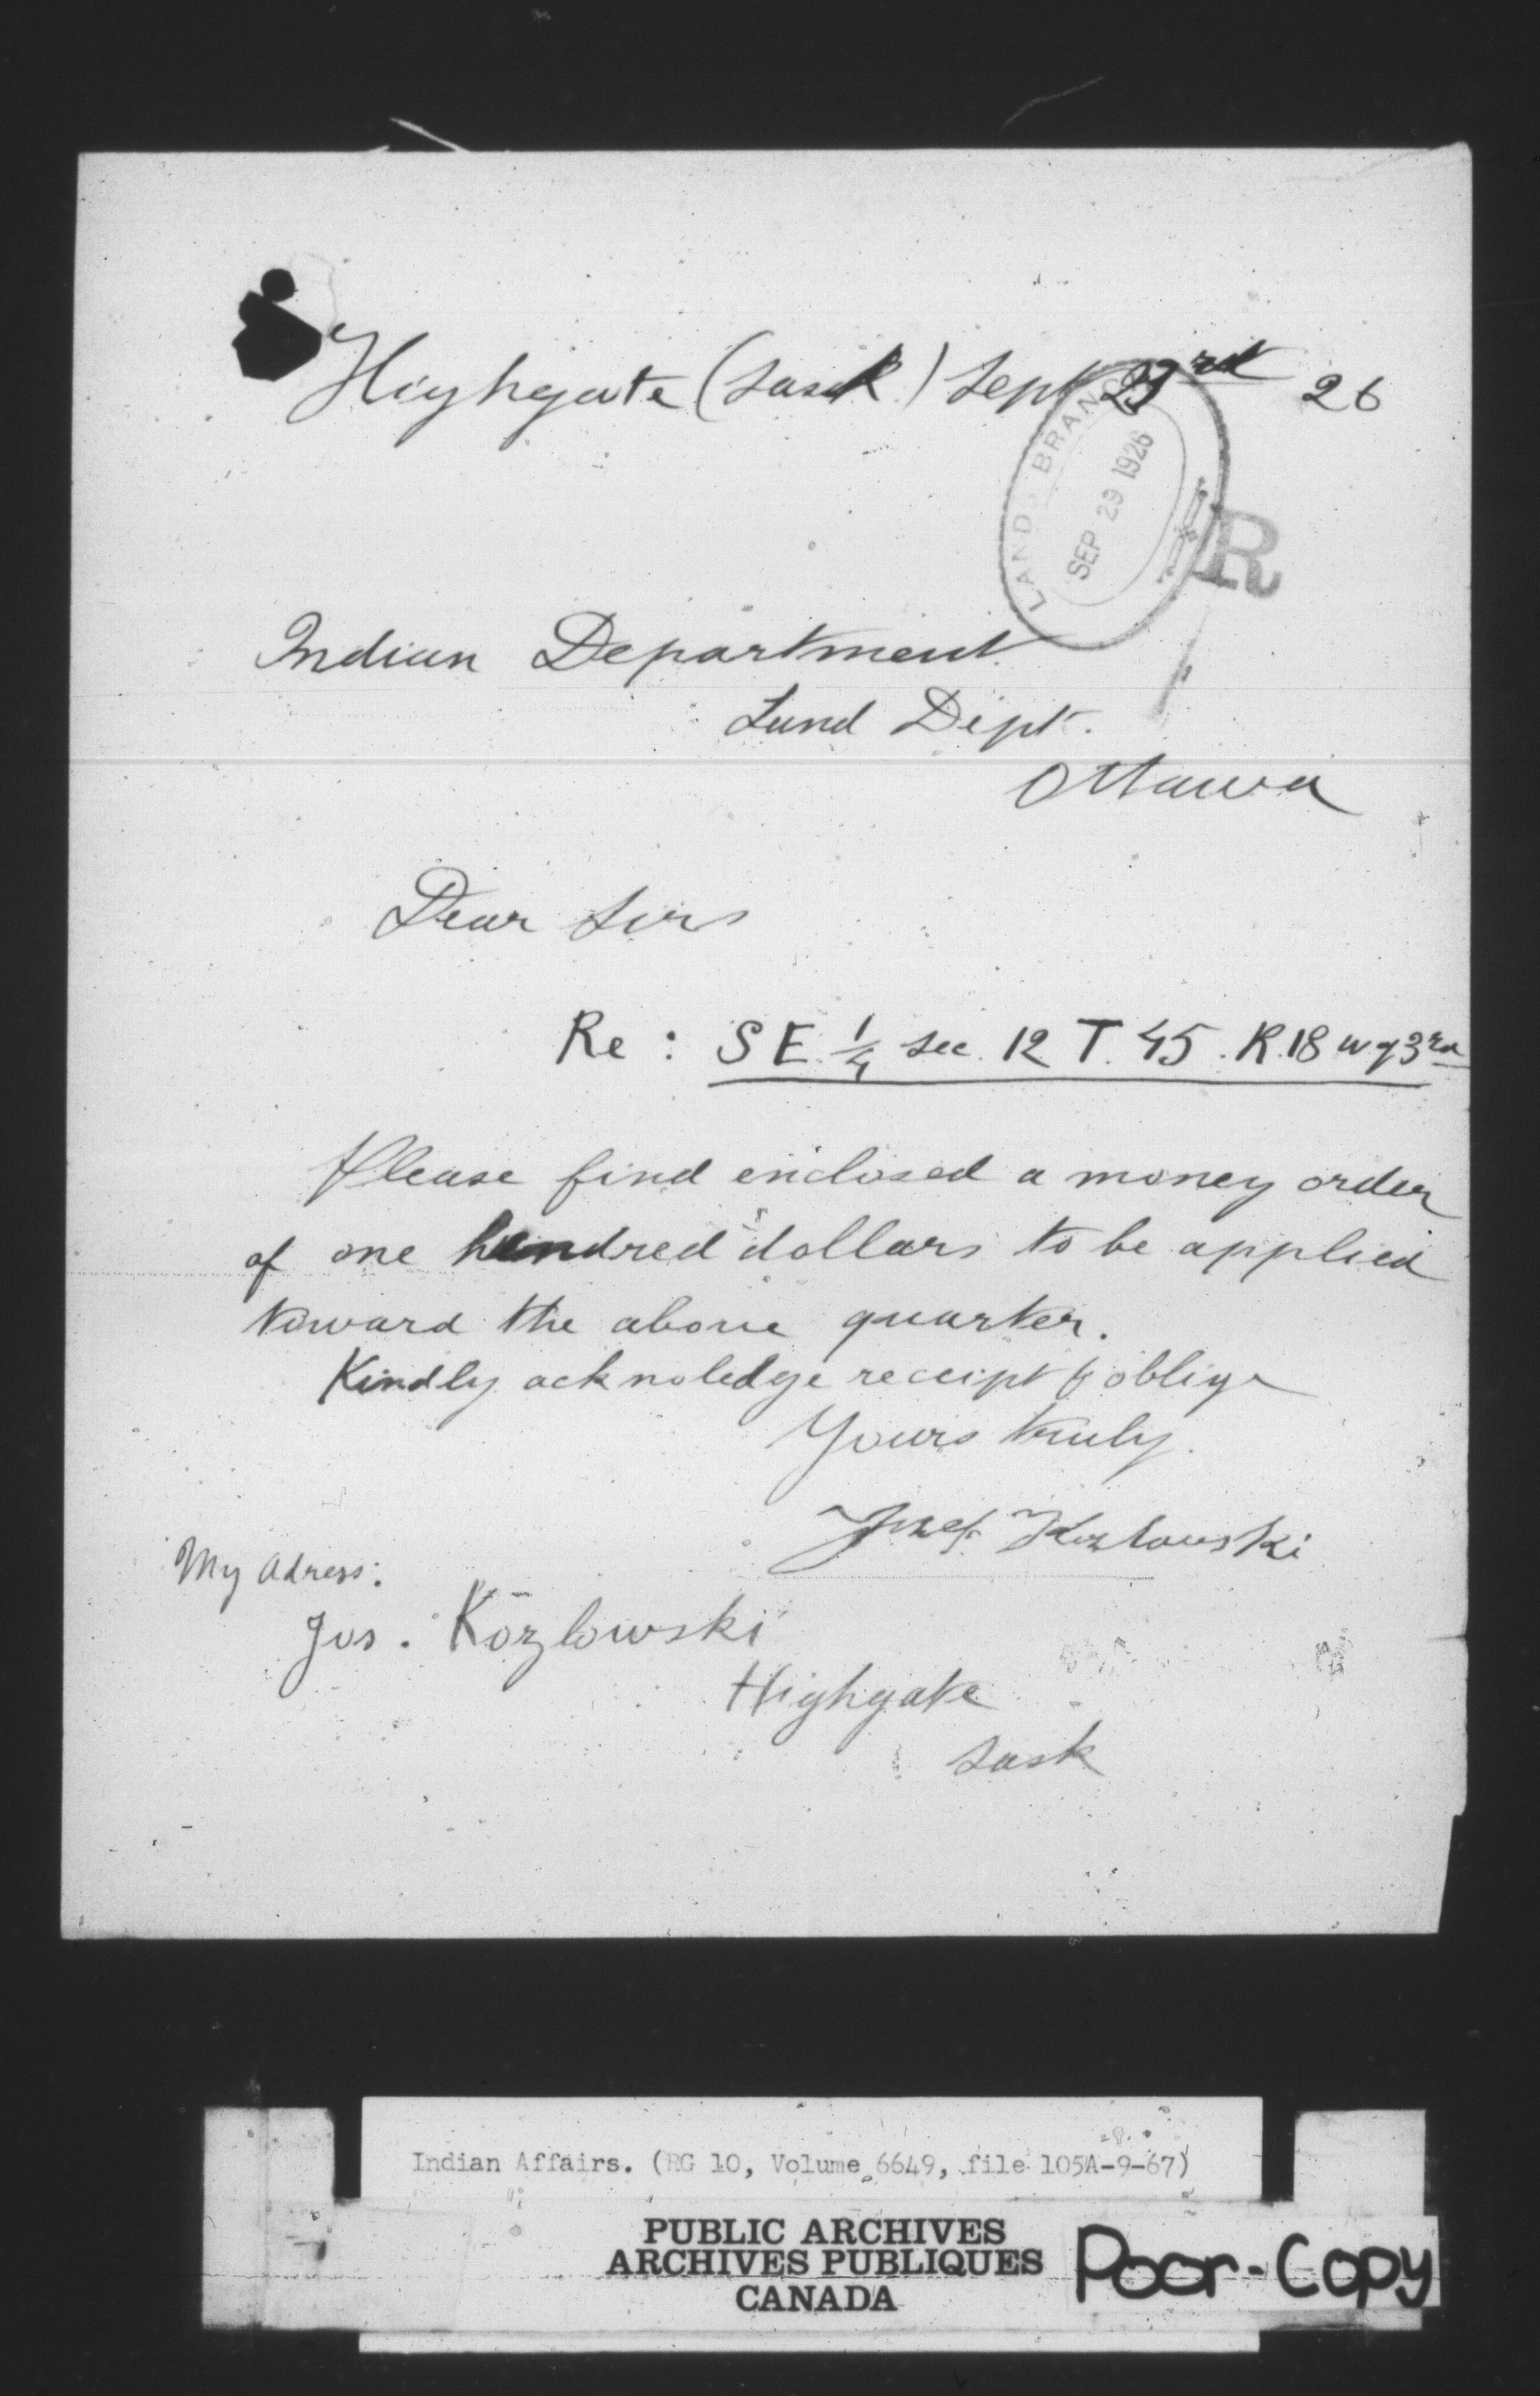 Highgate (Sask.) Sept 23rd 26
LANDS BRANCH
SEP 29 1926
R
Indian Department
Land Dept.
Ottawa
Dear Sirs
Re: S E. 1/4 Sec. 12 T. 45. R. 18 w of 3rd
Please find enclosed a money order
of one hundred dollars to be applied
toward the above quarter.
Kindly acknoledge receipt & oblige
Yours truly.
Jozef Kozlowski
My Adress:
Jos. Kozlowski
Highgate
Sask
Indian Affairs. (RG 10, Volume 6649, file 105A-9-67)
PUBLIC ARCHIVES
ARCHIVES PUBLIQUES
CANADA
Poor-Copy